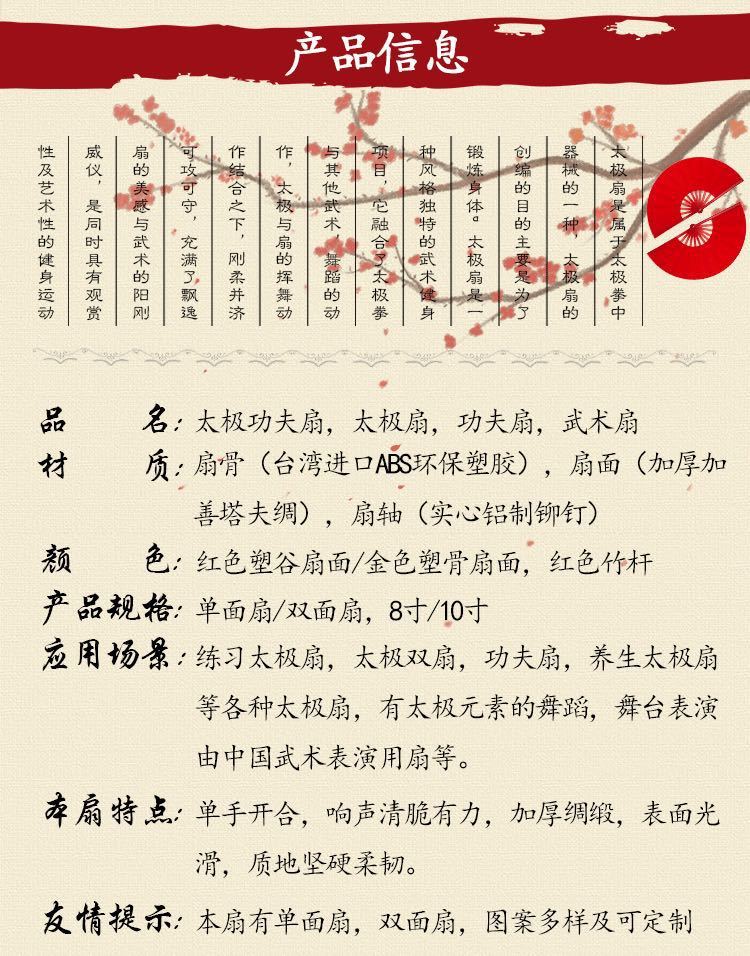 产品信息
太极扇是属于太极拳中
器械的一种，太极扇的
创编的目的主要是为了
锻炼身体。太极扇是一
种风格独特的武术健身
项目，它融合了太极拳
与其他武术，舞蹈的动
作，太极与扇的挥舞动
作结合之下，刚柔并济
可攻可守，充满了飘逸
扇的美感与武术的阳刚
威仪，是同时具有观赏
性及艺术性的健身运动
品名：太极功夫扇，太极扇，功夫扇，武术扇
材质：扇骨（台湾进口ABS环保塑胶），扇面（加厚加
善塔夫绸），扇轴（实心铝制铆钉）
颜色：红色塑谷扇面/金色塑骨扇面，红色竹杆
产品规格：单面扇/双面扇，8寸/10寸
应用场景：练习太极扇，太极双扇，功夫扇，养生太极扇
等各种太极扇，有太极元素的舞蹈，舞台表演
由中国武术表演用扇等。
本扇特点：单手开合，响声清脆有力，加厚绸缎，表面光
滑，质地坚硬柔韧。
友情提示：本扇有单面扇，双面扇，图案多样及可定制